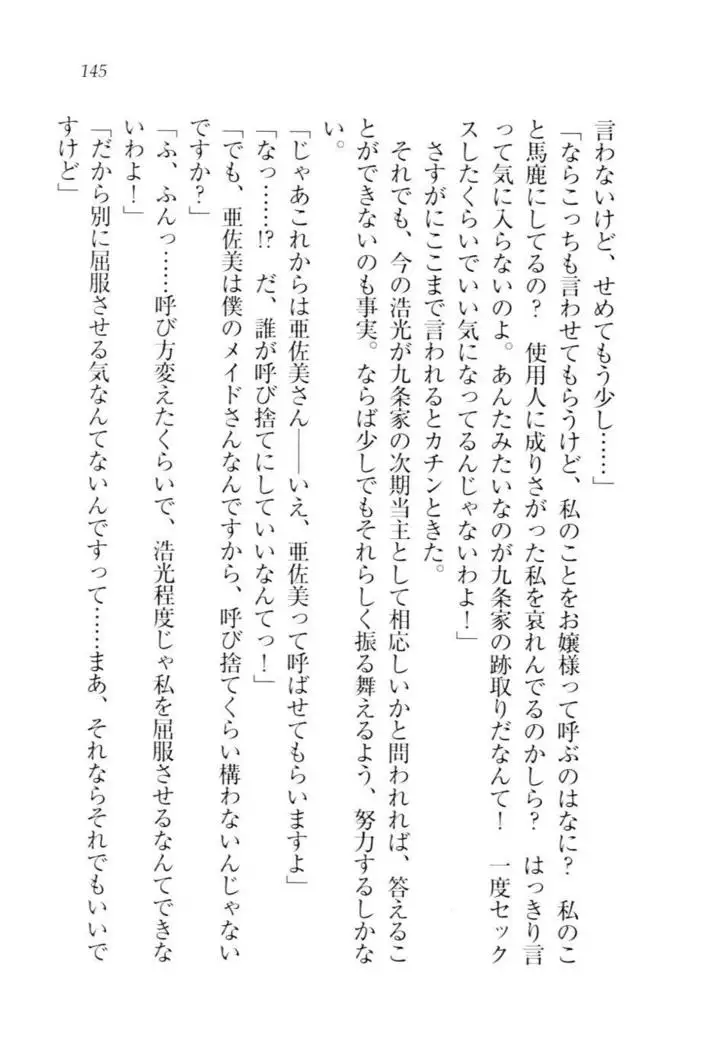 145
言わないけど、せめてもう少し……」
「ならこっちも言わせてもらうけど、私のことをお嬢様って呼ぶのはなに? 私のこ
と馬鹿にしてるの? 使用人に成りさがった私を哀れんでるのかしら? はっきり言
って気に入らないのよ。あんたみたいなのが九条家の跡取りだなんて! 一度セック
スしたくらいでいい気になってるんじゃないわよ!」
さすがにここまで言われるとカチンときた。
それでも、今の浩光が九条家の次期当主として相応しいかと問われれば、答えるこ
とができないのも事実。ならば少しでもそれらしく振る舞えるよう、努力するしかな
い。
「じゃあこれからは亜佐美さん――いえ、亜佐美って呼ばせてもらいますよ」
「なっ……!? だ、誰が呼び捨てにしていいなんてっ!」
「でも、亜佐美は僕のメイドさんなんですから、呼び捨てくらい構わないんじゃない
ですか?」
「ふ、ふんっ……呼び方変えたくらいで、浩光程度じゃ私を屈服させるなんてできな
いわよ!」
「だから別に屈服させる気なんてないんですって……まあ、それならそれでもいいで
すけど」